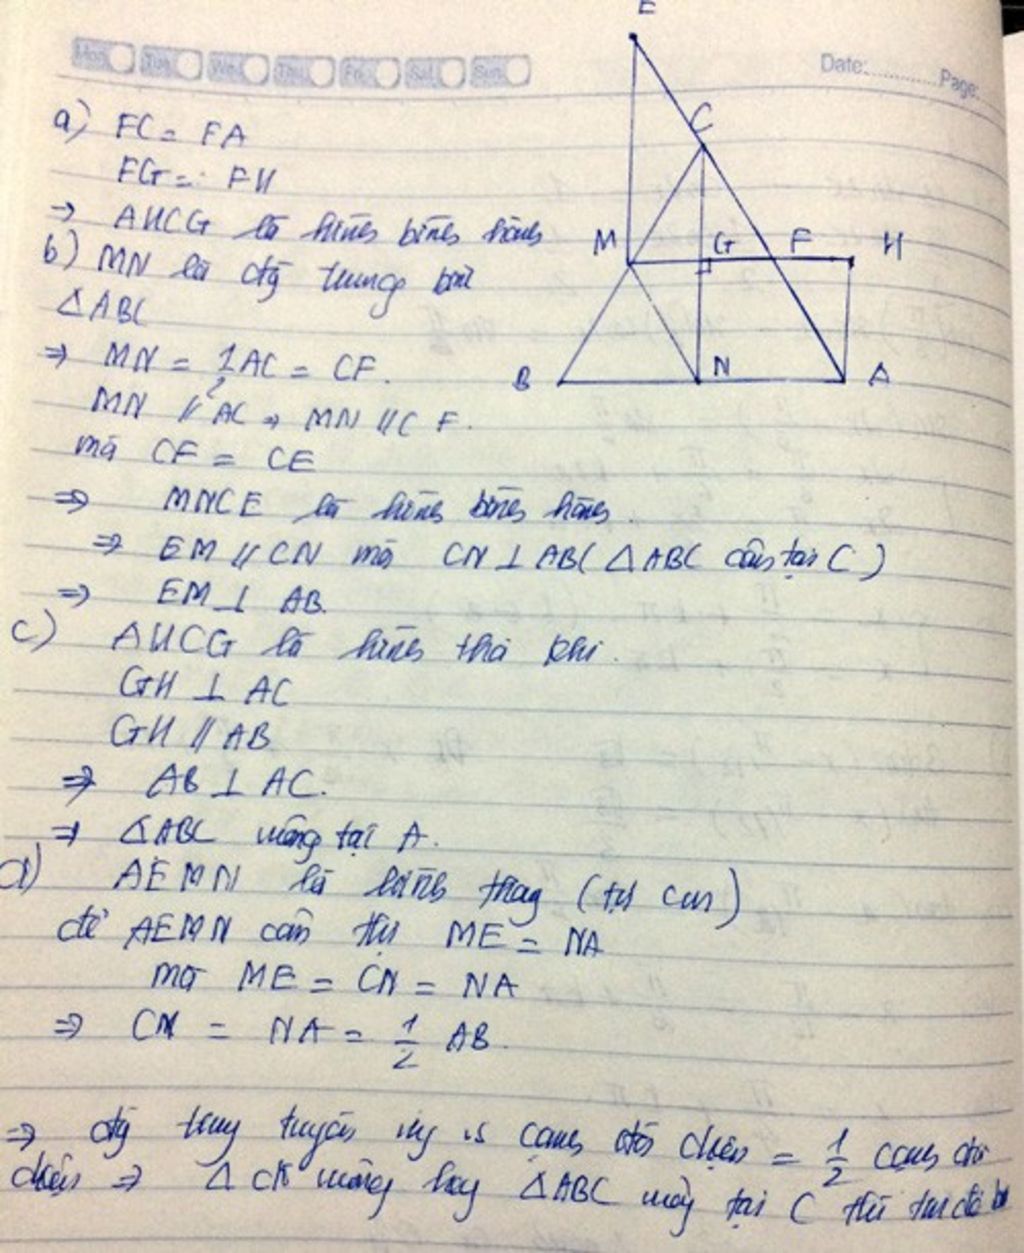 Mon Tue Wed Thu Fri Sat Sun
Date: Page:
E
C
M G F H
B N A
a) FC = FA
FG = FH
=> AHCG là hình bình hành
b) MN là đg trung bình
△ABC
=> MN = 1/2 AC = CF.
MN // AC => MN // CF.
mà CF = CE
=> MNCE là hình bình hành.
=> EM // CN mà CN ⊥ AB (△ABC cân tại C)
=> EM ⊥ AB.
c) AHCG là hình thoi khi.
GH ⊥ AC
GH // AB
=> AB ⊥ AC.
=> △ABC vuông tại A.
d) AEMN là hình thang (tự cm)
để AEMN cân thì ME = NA
mà ME = CN = NA
=> CN = NA = 1/2 AB.
=> đg trung tuyến ứng vs cạnh đối diện = 1/2 cạnh đối
diện => △ vuông hay △ABC tại C thì